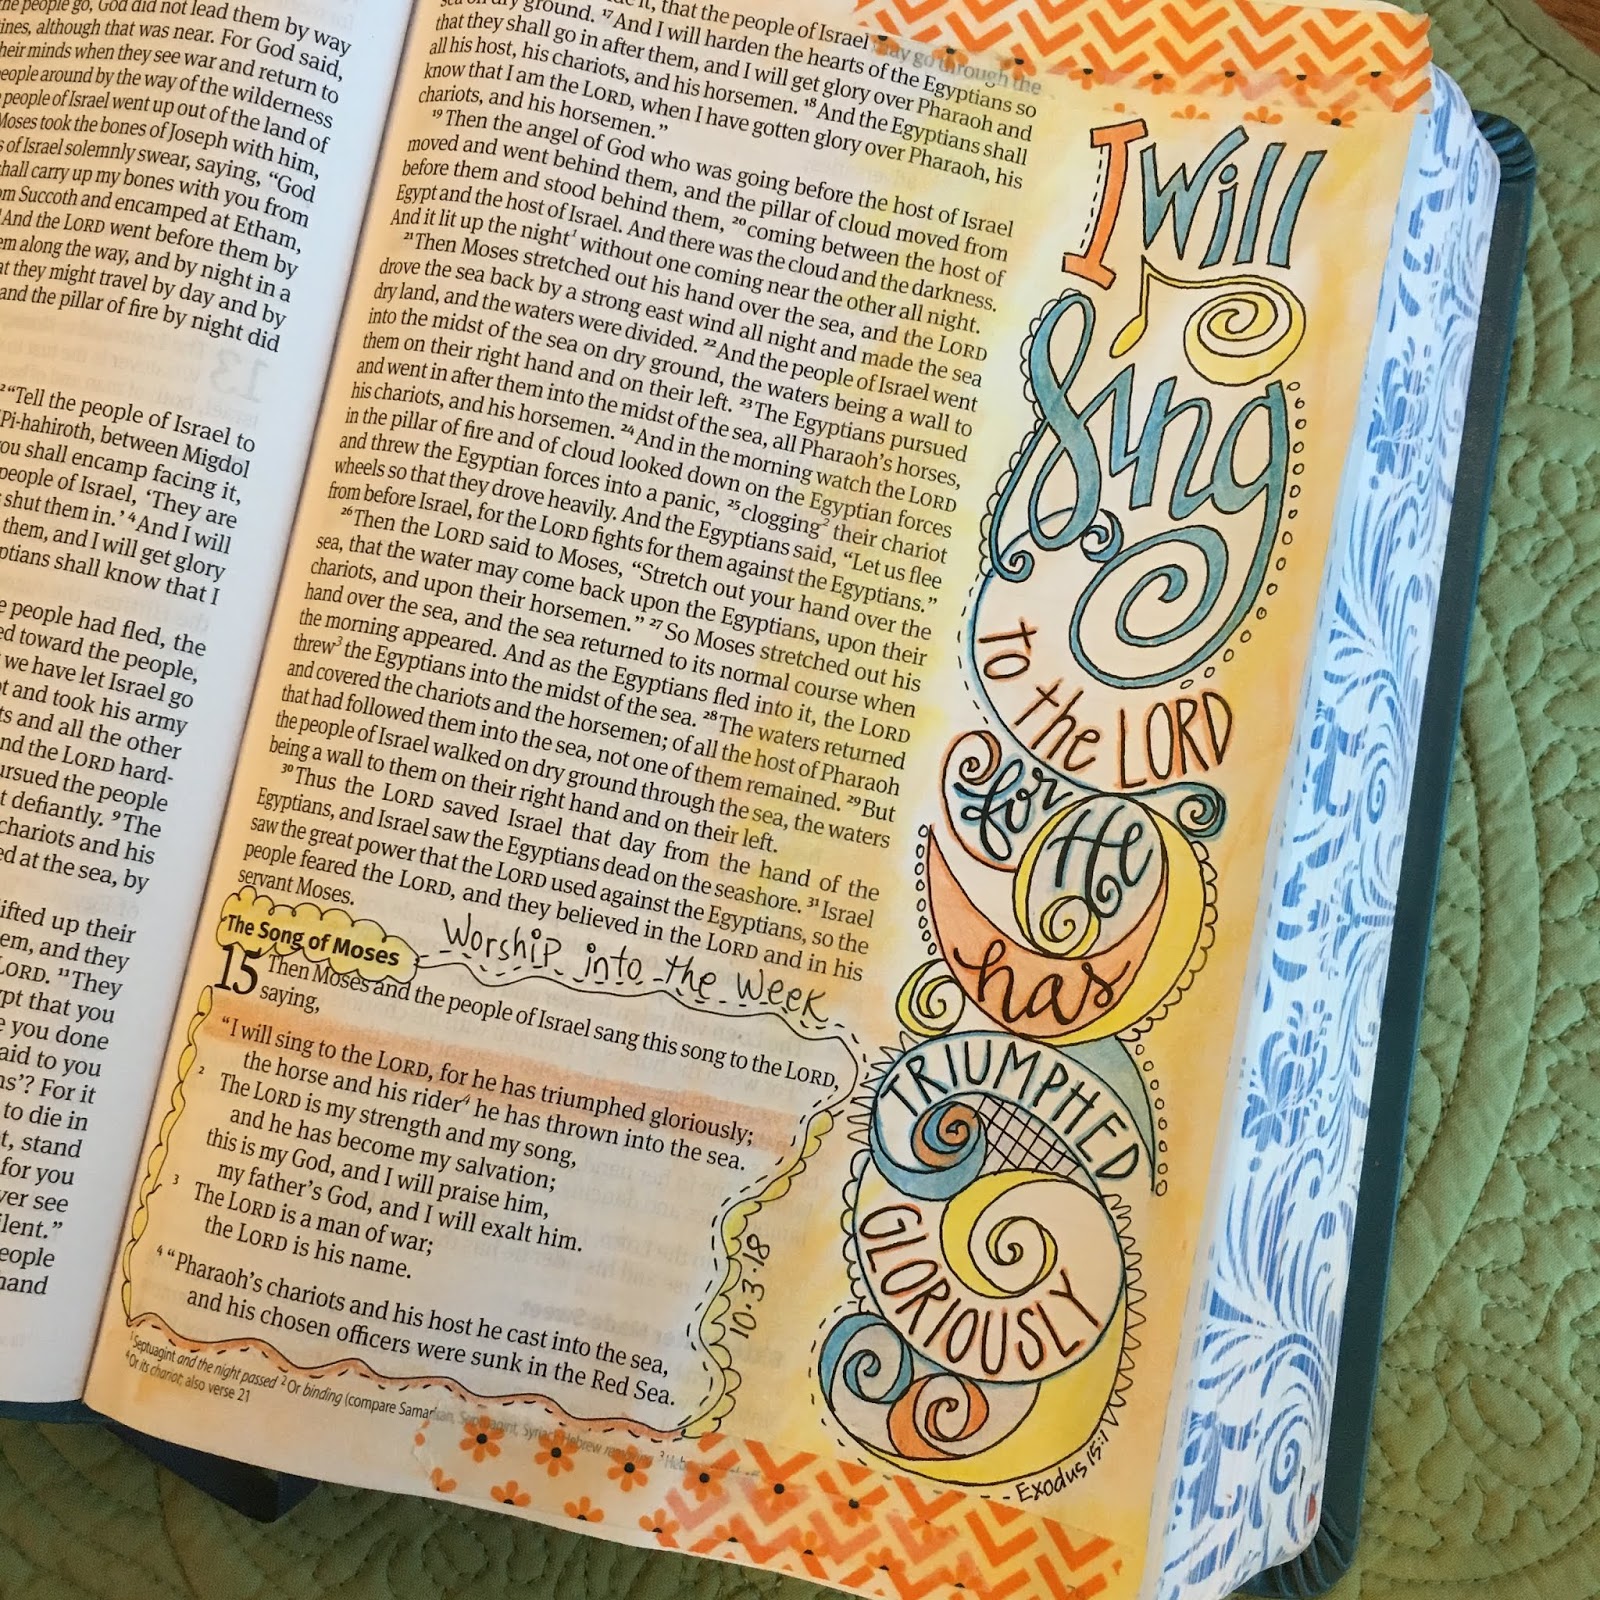 the people go, God did not lead them by way
ines, although that was near. For God said,
heir minds when they see war and return to
people around by the way of the wilderness
people of Israel went up out of the land of
Moses took the bones of Joseph with him,
s of Israel solemnly swear, saying, “God
hall carry up my bones with you from
om Succoth and encamped at Etham,
And the LORD went before them by
em along the way, and by night in a
at they might travel by day and by
and the pillar of fire by night did
2 “Tell the people of Israel to
Pi-hahiroth, between Migdol
ou shall encamp facing it,
people of Israel, ‘They are
shut them in.’ 4 And I will
them, and I will get glory
ptians shall know that I
e people had fled, the
ed toward the people,
we have let Israel go
ot and took his army
ts and all the other
nd the LORD hard-
ursued the people
t defiantly. 9 The
chariots and his
ed at the sea, by
ifted up their
em, and they
LORD. 11 They
pt that you
e you done
aid to you
ns’? For it
to die in
t, stand
for you
ver see
ilent.”
eople
hand
it, that the people of Israel may go through the
sea on dry ground. 17 And I will harden the hearts of the Egyptians so
that they shall go in after them, and I will get glory over Pharaoh and
all his host, his chariots, and his horsemen. 18 And the Egyptians shall
know that I am the LORD, when I have gotten glory over Pharaoh, his
chariots, and his horsemen.”
19 Then the angel of God who was going before the host of Israel
moved and went behind them, and the pillar of cloud moved from
before them and stood behind them, 20 coming between the host of
Egypt and the host of Israel. And there was the cloud and the darkness.
And it lit up the night1 without one coming near the other all night.
21 Then Moses stretched out his hand over the sea, and the LORD
drove the sea back by a strong east wind all night and made the sea
dry land, and the waters were divided. 22 And the people of Israel went
into the midst of the sea on dry ground, the waters being a wall to
them on their right hand and on their left. 23 The Egyptians pursued
and went in after them into the midst of the sea, all Pharaoh’s horses,
his chariots, and his horsemen. 24 And in the morning watch the LORD
in the pillar of fire and of cloud looked down on the Egyptian forces
and threw the Egyptian forces into a panic, 25 clogging2 their chariot
wheels so that they drove heavily. And the Egyptians said, “Let us flee
from before Israel, for the LORD fights for them against the Egyptians.”
26 Then the LORD said to Moses, “Stretch out your hand over the
sea, that the water may come back upon the Egyptians, upon their
chariots, and upon their horsemen.” 27 So Moses stretched out his
hand over the sea, and the sea returned to its normal course when
the morning appeared. And as the Egyptians fled into it, the LORD
threw3 the Egyptians into the midst of the sea. 28 The waters returned
and covered the chariots and the horsemen; of all the host of Pharaoh
that had followed them into the sea, not one of them remained. 29 But
the people of Israel walked on dry ground through the sea, the waters
being a wall to them on their right hand and on their left.
30 Thus the LORD saved Israel that day from the hand of the
Egyptians, and Israel saw the Egyptians dead on the seashore. 31 Israel
saw the great power that the LORD used against the Egyptians, so the
people feared the LORD, and they believed in the LORD and in his
servant Moses.
The Song of Moses
Worship into the Week
15 Then Moses and the people of Israel sang this song to the LORD,
saying,
“I will sing to the LORD, for he has triumphed gloriously;
the horse and his rider4 he has thrown into the sea.
2 The LORD is my strength and my song,
and he has become my salvation;
this is my God, and I will praise him,
my father’s God, and I will exalt him.
3 The LORD is a man of war;
the LORD is his name.
4 “Pharaoh’s chariots and his host he cast into the sea,
and his chosen officers were sunk in the Red Sea.
10.3.18
1 Septuagint and the night passed 2 Or binding (compare Samaritan, Septuagint, Syriac); Hebrew 3 Hebrew
4 Or its chariot; also verse 21
I Will
Sing
TO the LORD
for the
has
TRIUMPHED
GLORIOUSLY
Exodus 15:1